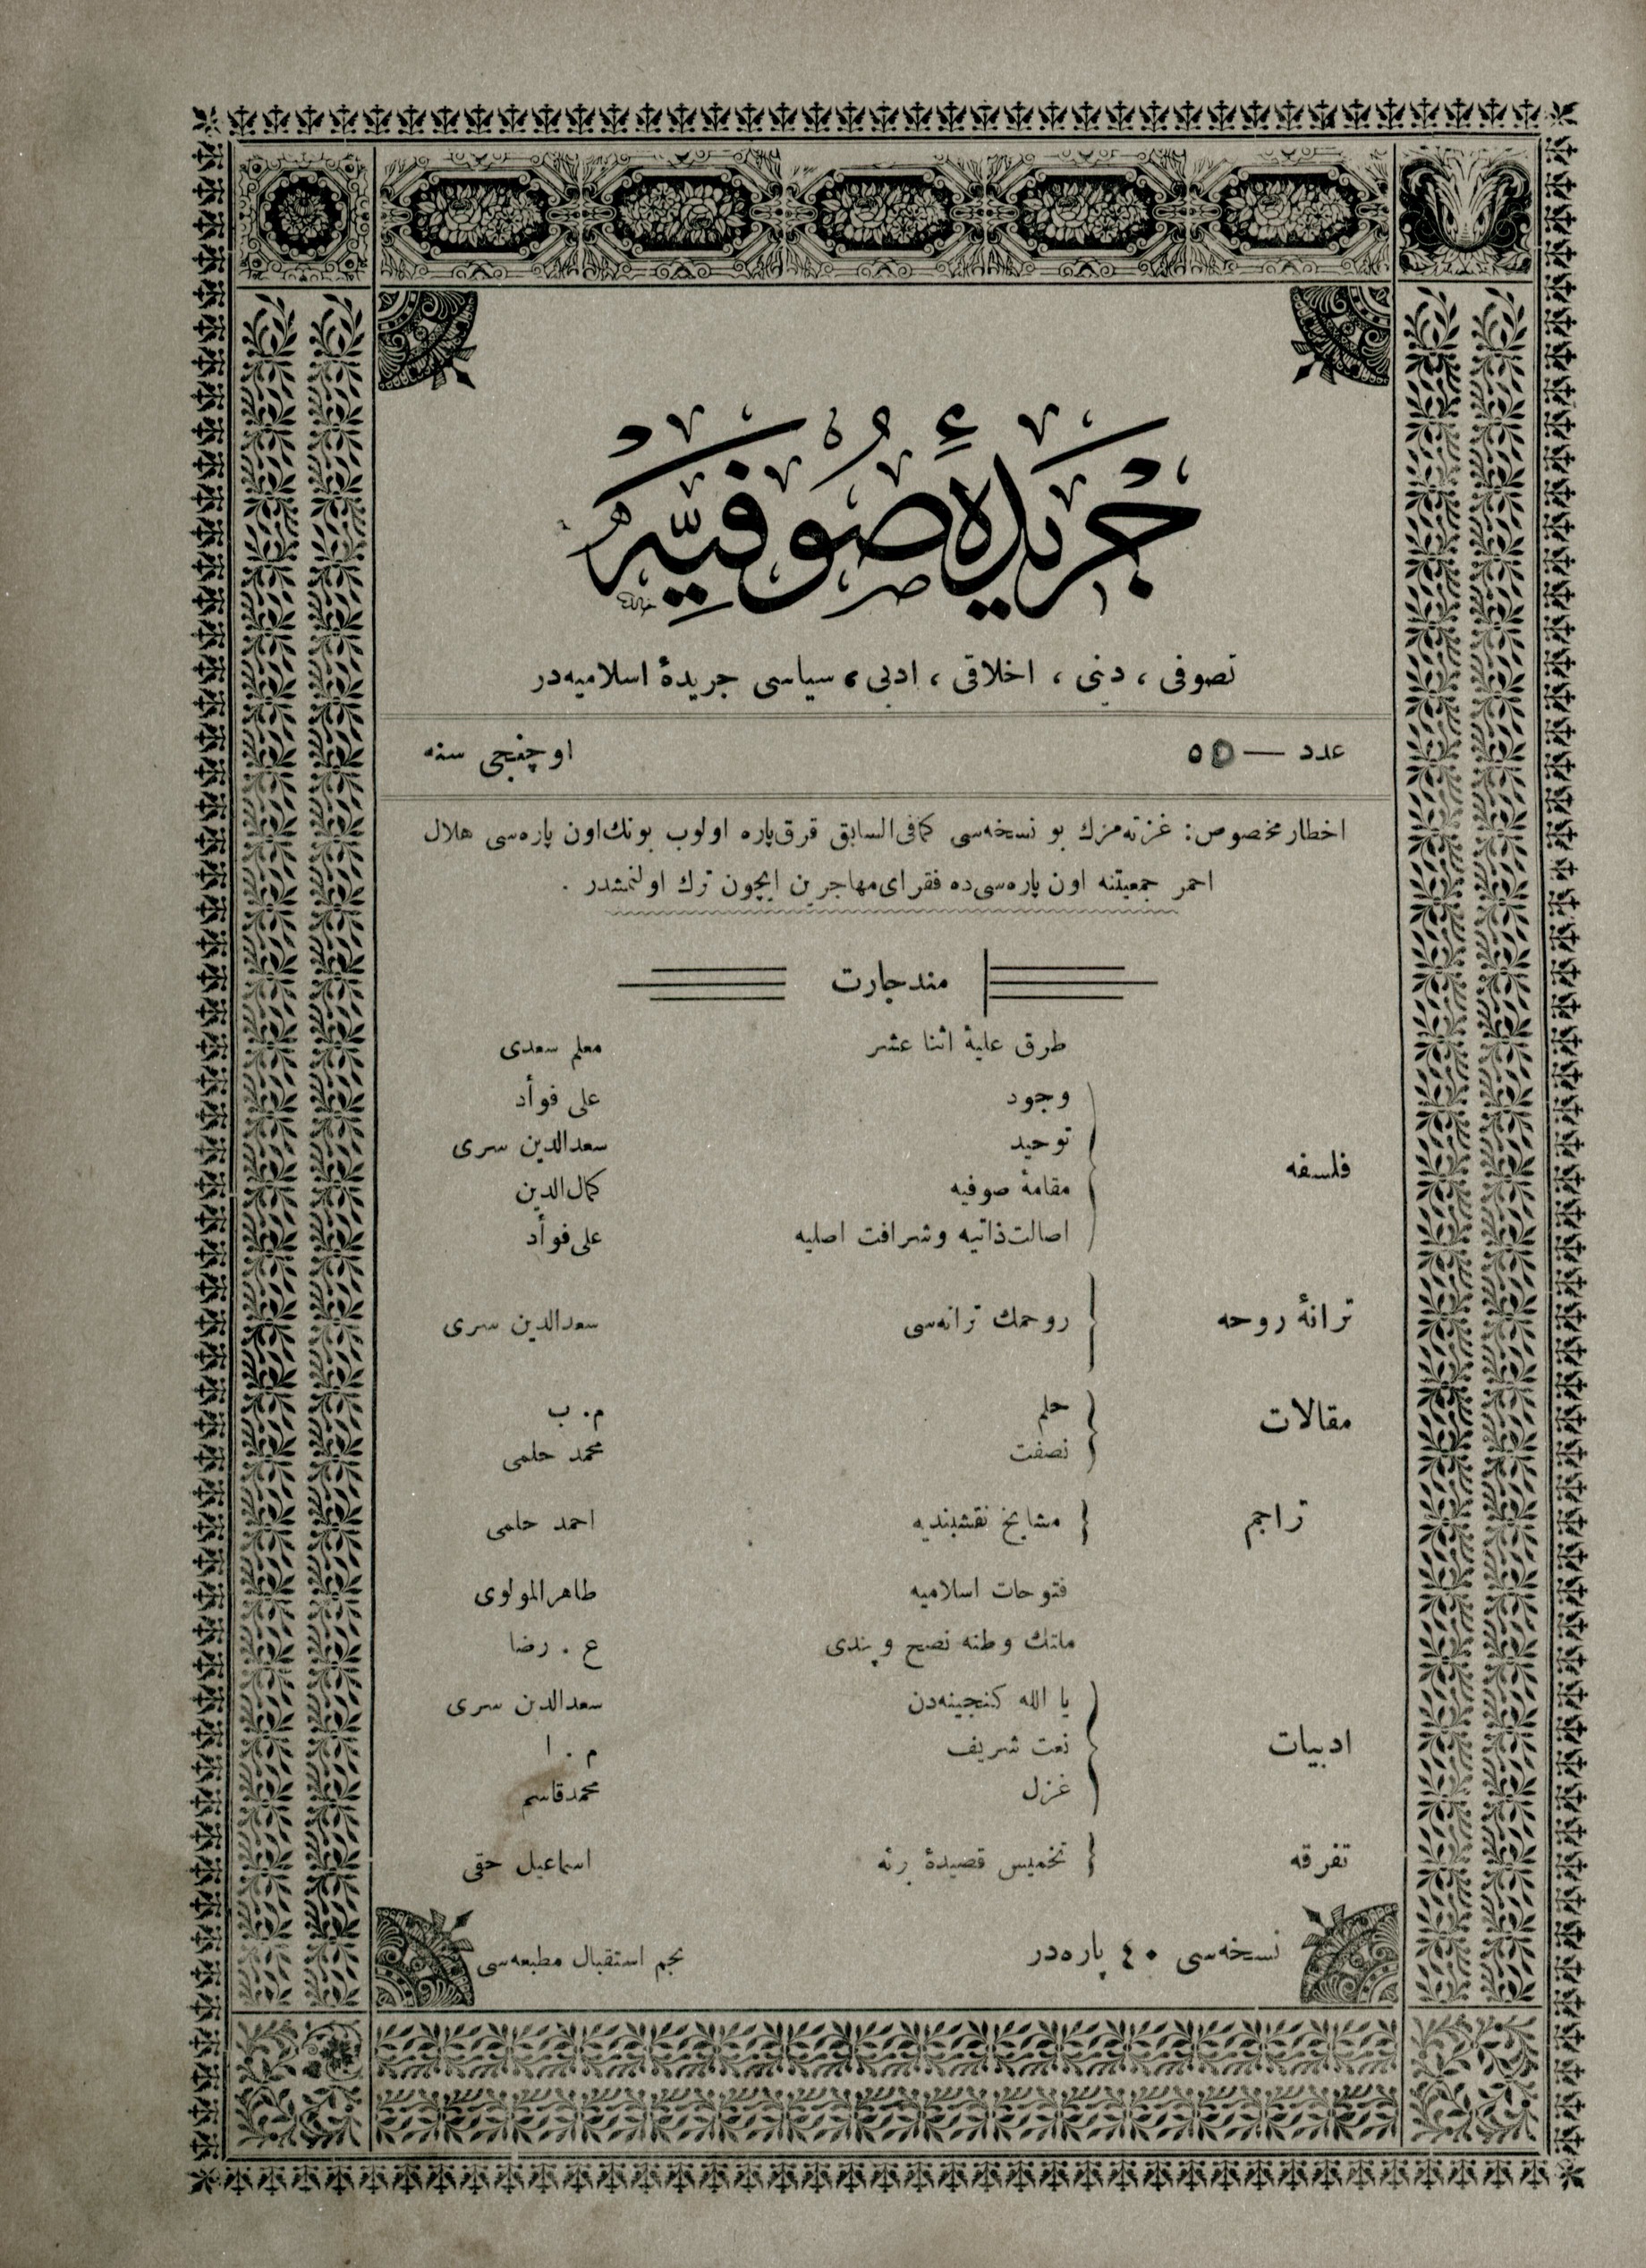 جريدۀ صوفيه
تصوفى ، دينى ، اخلاقى ، ادبى ، سياسى جريدۀ اسلاميه‌در
عدد — ٥٥ اوچنجى سنه
اخطار مخصوص: غزته‌مزك بو نسخه‌سى كمافى‌السابق قرق پاره اولوب بونك اون پاره‌سى هلال
احمر جمعيتنه اون پاره‌سى ده فقراى مهاجرين ايچون ترك اولنمشدر .
مندجارت
طرق عليۀ اثنا عشر معلم سعدى
فلسفه
وجود على فوأد
توحيد سعدالدين سرى
مقامۀ صوفيه كمال‌الدين
اصالت ذاتيه وشرافت اصليه على فوأد
ترانۀ روحه روحمك ترانه‌سى سعدالدين سرى
مقالات
حلم م . ب
نصفت محمد حلمى
تراجم مشايخ نقشبنديه احمد حلمى
فتوحات اسلاميه طاهرالمولوى
ملتك وطنه نصح و پندى ع . رضا
ادبيات
يا الله كنجينه‌دن سعدالدين سرى
نعت شريف م . ا
غزل محمد قاسم
تفرقه تخميس قصيدۀ برئه اسماعيل حقى
نسخه‌سى ٤٠ پاره‌در نجم استقبال مطبعه‌سى